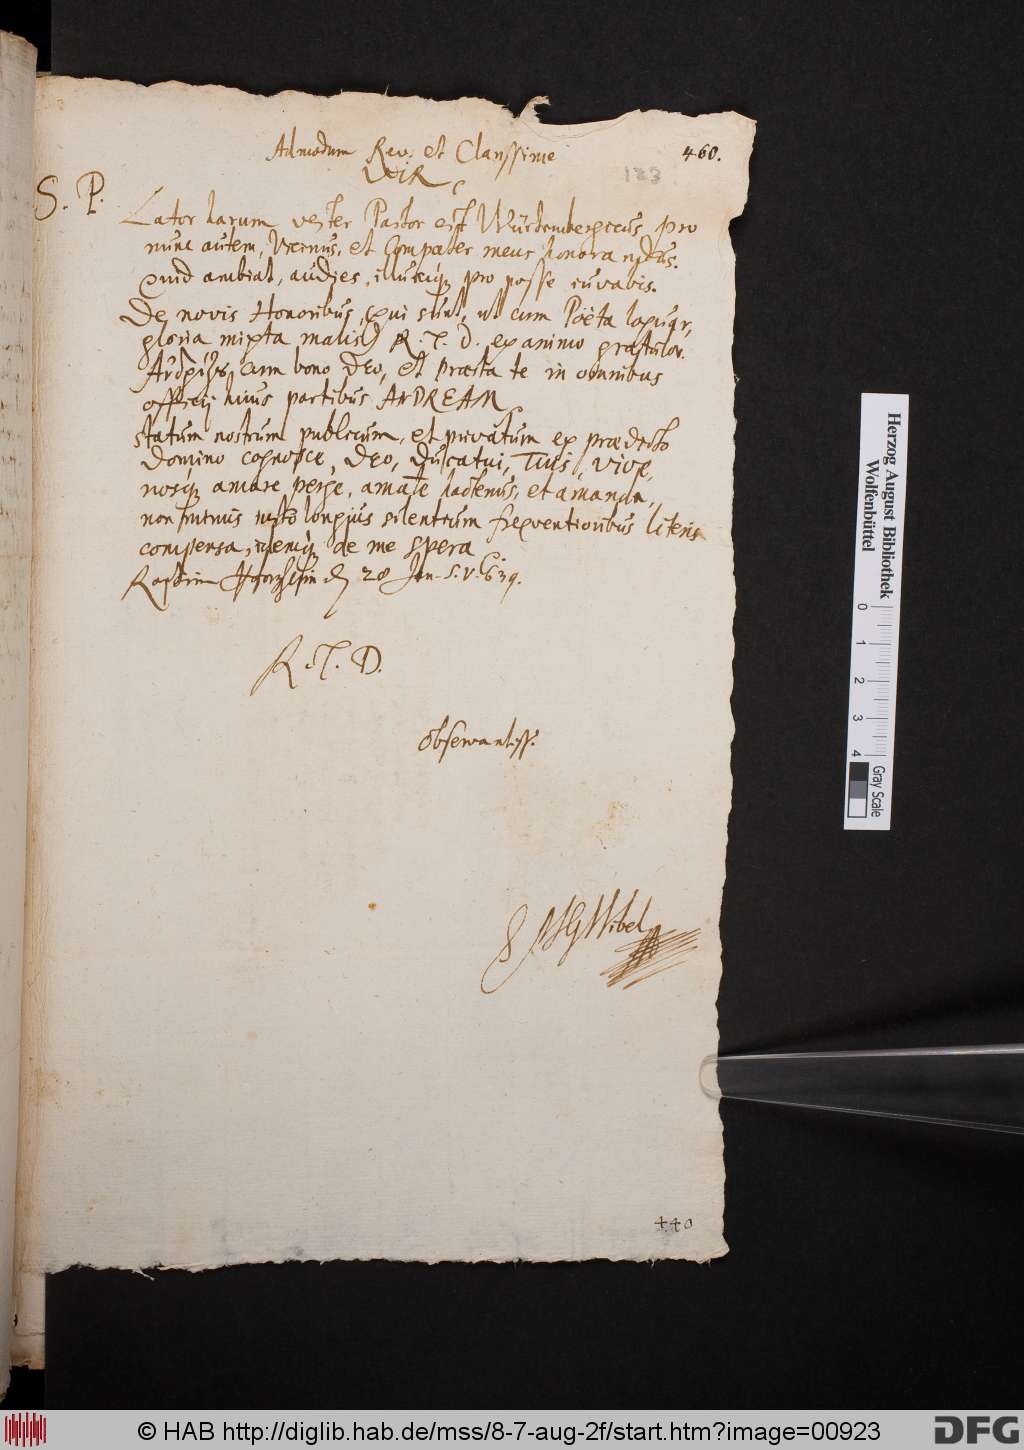 460.
123
Admodum Rev. et Clarissime
VIR
S. P.
Lator harum vester Pastor est Würtembergicus, pro
nunc autem, Vicinus, et Compater meus honorandus.
Quid ambiat, audies, illumq; pro posse iuvabis.
De novis Honoribus, (qui sunt, ut cum Poëta loquar,
gloria mixta malis) R. T. D. ex animo gratulor.
cum bono DEO, et praesta te in omnibus
officij huius partibus ANDREAM
statum nostrum publicum, et privatum ex praedicto
Domino cognosce, DEO, Ducatui, Tuis, vive,
nosq; amare perge, amate hactenus, et amande,
non nimis iusto longius silentium frequentioribus literis
compensa, idemq; de me spera
28 Jan. S. V. 639.
R. T. D.
Observantiss.
Wibel
440
Herzog August Bibliothek
Wolfenbüttel
0 1 2 3 4
Gray Scale
© HAB http://diglib.hab.de/mss/8-7-aug-2f/start.htm?image=00923
DFG